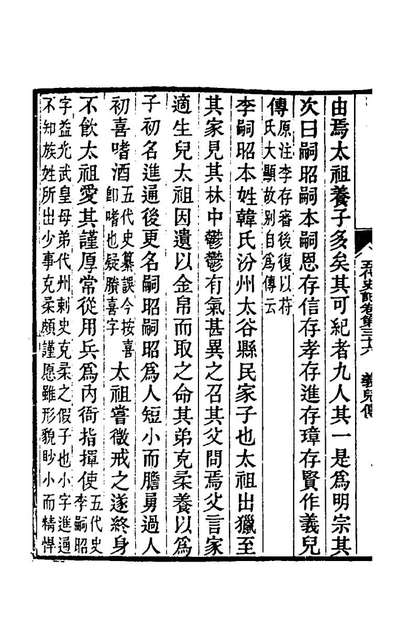 五代史記卷第三十六　義兒傳
由焉太祖養子多矣其可紀者九人其一是爲明宗其
次曰嗣昭嗣本嗣恩存信存孝存進存璋存賢作義兒
傳
原注李存審後復以符
氏大顯故別自爲傳云
李嗣昭本姓韓氏汾州太谷縣民家子也太祖出獵至
其家見其林中鬱鬱有氣甚異之召其父問焉父言家
適生兒太祖因遺以金帛而取之命其弟克柔養以爲
子初名進通後更名嗣昭嗣昭爲人短小而膽勇過人
初喜嗜酒
五代史纂誤今按喜
卽嗜也疑賸喜字
太祖嘗微戒之遂終身
不飲太祖愛其謹厚常從用兵爲內衙指揮使
五代史
李嗣昭
字益光武皇母弟代州刺史克柔之假子也小字進通
不知族姓所出少事克柔頗謹愿雖形貌眇小而精悍